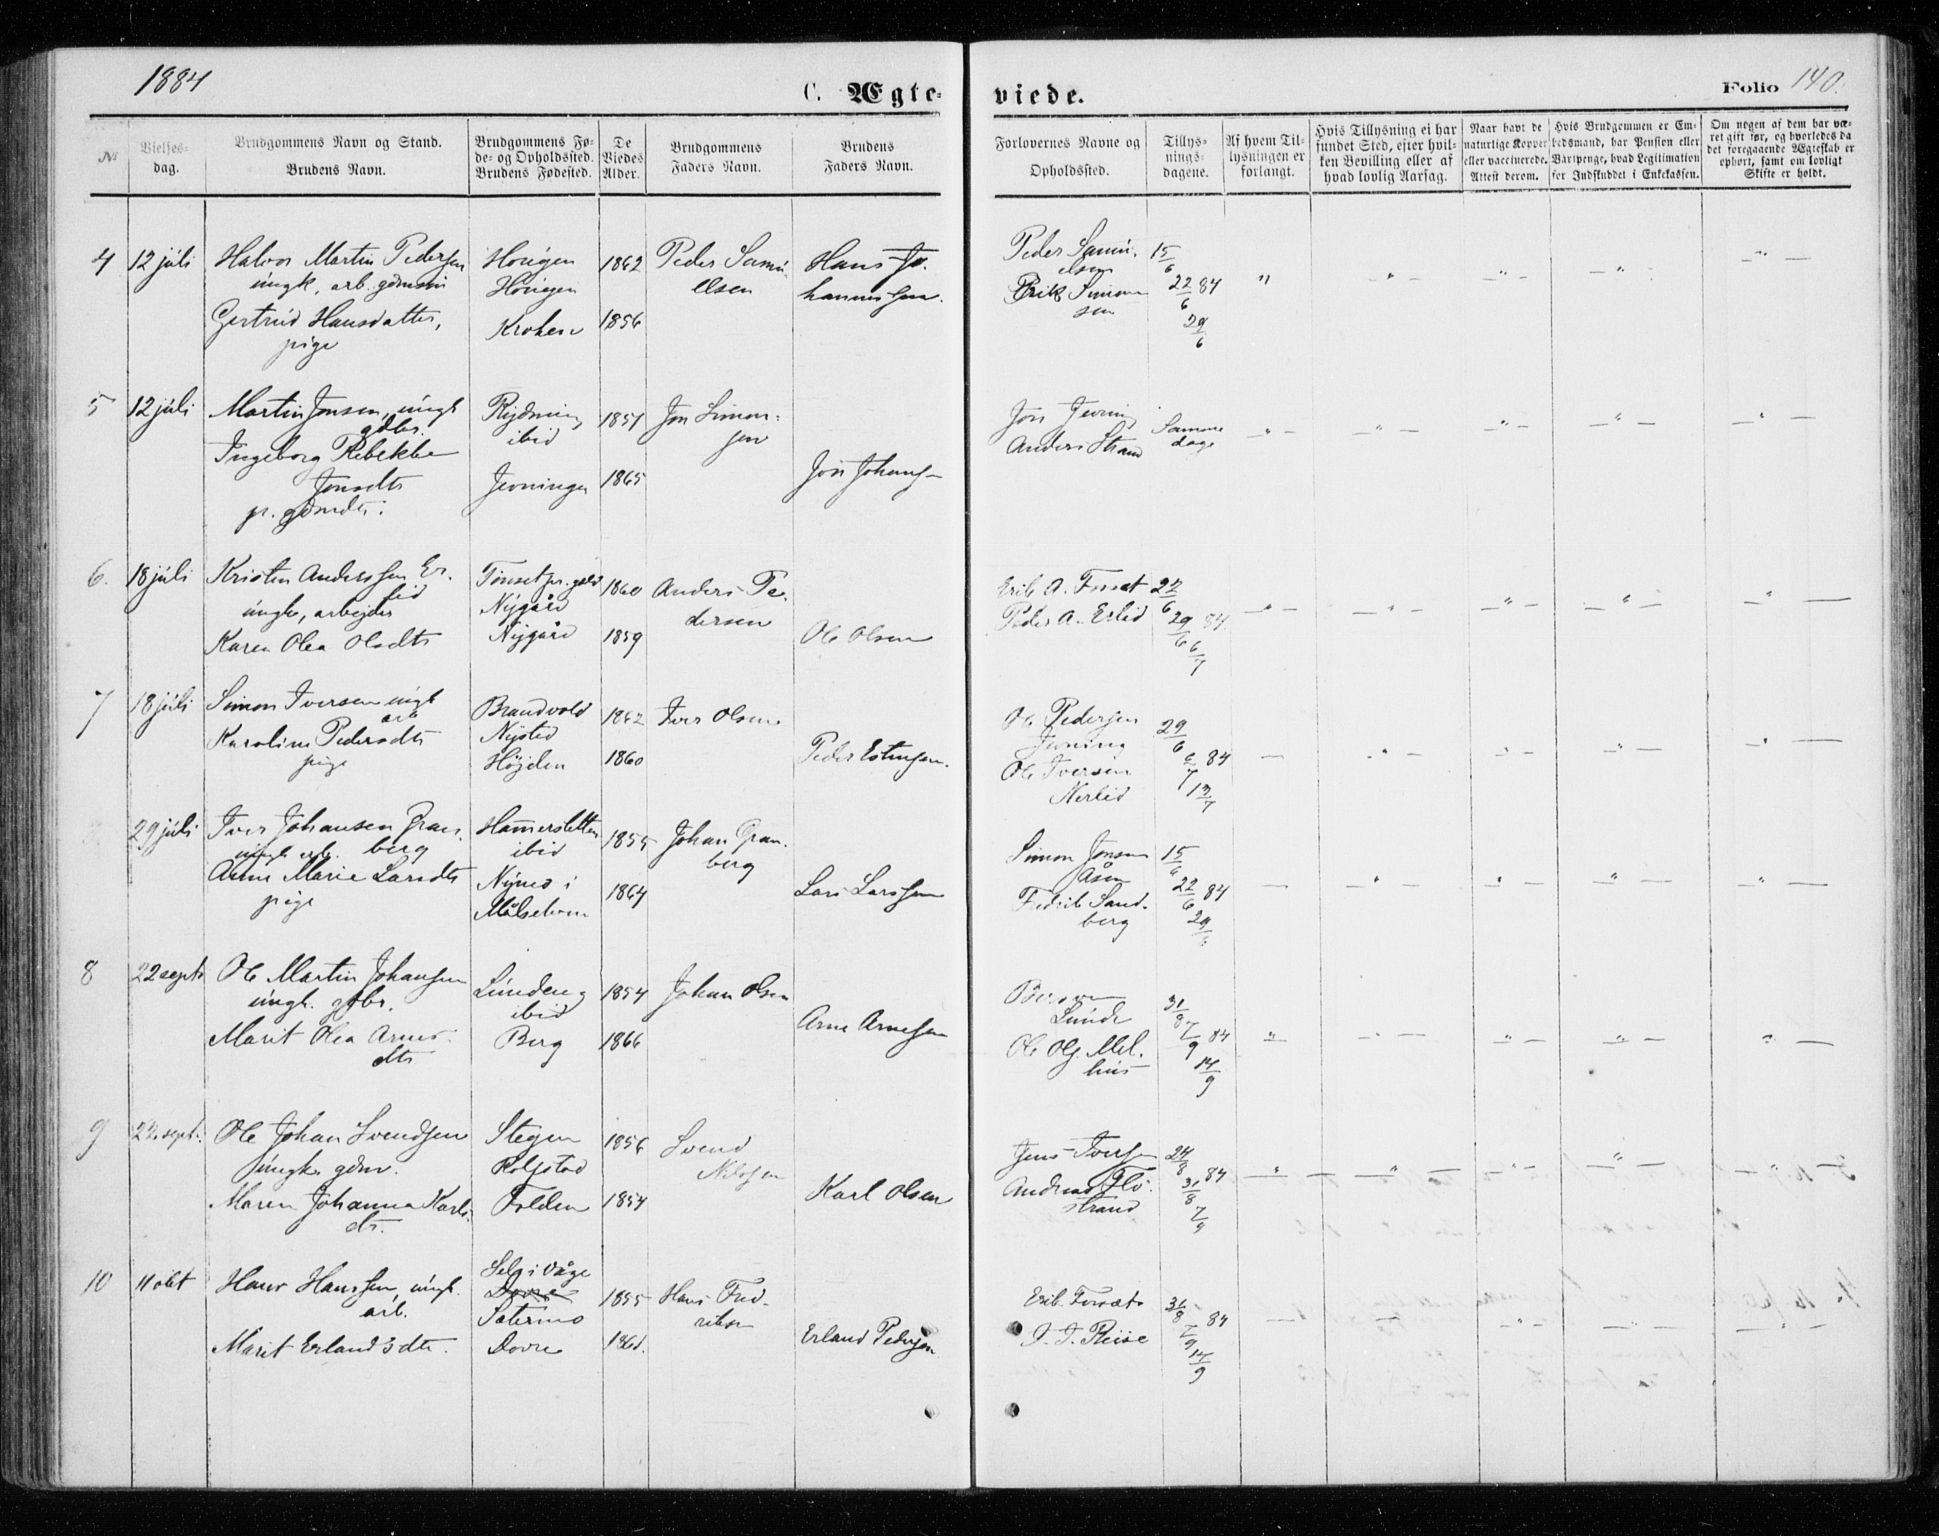 1884
C. Ægte-
viede.
Folio 140.
No
Vielses-
dag.
Brudgommens Navn og Stand.
Brudens Navn.
Brudgommens Fø-
de- og Opholdssted.
Brudens Fødested.
De
Viedes
Alder.
Brudgommens
Faders Navn.
Brudens
Faders Navn.
Forlovernes Navne og
Opholdssted.
Tillys-
nings-
dagene.
Af hvem Til-
lysningen er
forlangt.
Hvis Tillysning ei har
fundet Sted, efter hvil-
ken Bevilling eller af
hvad lovlig Aarsag.
Naar havt de
naturlige Kopper
eller vaccinerede.
Attest derom.
Hvis Brudgommen er Em-
bedsmand, har Pension eller
Vartpenge, hvad Legitimation
for Indskuddet i Enkekassen.
Om nogen af dem har væ-
ret gift før, og hvorledes da
det foregaaende Ægteskab er
ophørt, samt om lovligt
Skifte er holdt.
4 12 júli
Halvor Martin Pedersen
úngk, arb. gdmsøn
Gertrúd Hansdatter,
pige
1862
1856
Peder Samú
elsen
Hans Jo.
hannessen.
Peder Samú.
elsen
Erik Simon
sen
15/6
22/6 84
29/6
5 12 júli
Martin Jonsen, úngk
gdbr.
Ingeborg Rebekka
Jonsdtr
p. gdmdtr.
Rydning
ibid
Jevningen
1857
1865
Jon Simon-
sen
Jon Johans
Jon Jevning
Anders Strand
Samme
dage
6. 18 júli
Kristen Anderssen Er.
lid
úngk, arbejder
Karen Olea Olsdtr
Tønset pr.gjeld
Nýgård
Nýgård
1860
1859
Anders Pe.
dersen
Ole Olsen
Erik A. Fosset
Peder A. Erlid
22/6
29/6 84
6/7
7 18 júli
Simon Iversen úngk
arb
Karoline Pedersdtr
pige
Brandvold
Nysted
Højden
1862
1860
Iver Olsen
Peder Estensen.
Ole Pedersen
Jevning
Ole Iversen
Nerlid
29/6
6/7 84
13/7
29 júli
Iver Johansen Gran.
berg
úngk arb.
Anne Marie Larsdtr
pige
Hamerslettin
ibid
Nýmo i
Målselven
1855
1864
Johan Gran.
berg
Lars Larssen
Simon Jonsen
Åsen
Fredrik Sand.
berg
15/6
22/6 84
29/6
8 22 septr
Ole Martin Johansen
úngk. gdbr.
Marit Olea Arnes
dtr
Lúndeng
ibid
Berg
1854
1866
Johan Olsen
Arne Arnesen
Lúnde
Ole Ols. Mel.
hús
31/8
7/9 84
14/9
9 22. septr.
Ole Johan Svendsen
úngk. gdm.
Maren Johanna Karls
dtr.
Stegen
Kolstad
Folden
1856
1854
Svend
Nilssen
Karl Olsen
Jens Iversen
Andreas Flø.
strand
24/8
31/8 84
7/9
10 11 okt
Hans Hanssen, úngk.
arb.
Marit Erlandsdtr.
Sel i Våge
Dovre
Sætermo
Dovre
1855
1861.
Hans Fred.
riksen
Erland Pedersen
Erik Forsæt
J. J. Reise
31/8
7/9 84
14/9